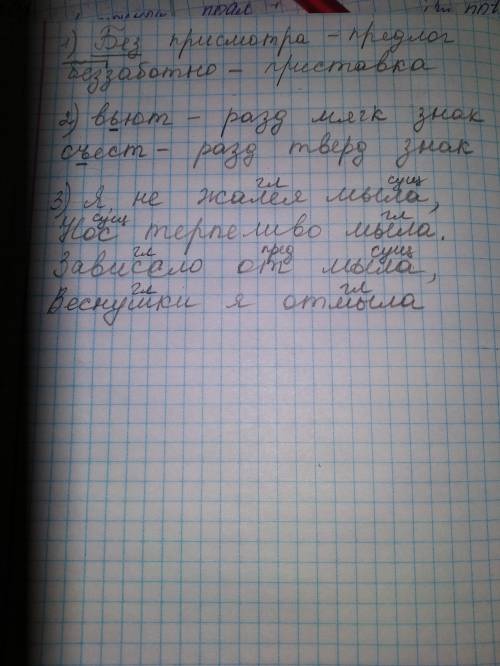 1) Без присмотра - предлог
Беззаботно - приставка
2) вьют - разд мягк знак
съест - разд тверд знак
гл сущ
3) Я, не жалея мыла,
сущ гл
Нос терпеливо мыла.
гл пред сущ
Зависало от мыла,
гл гл
Веснушки я отмыла